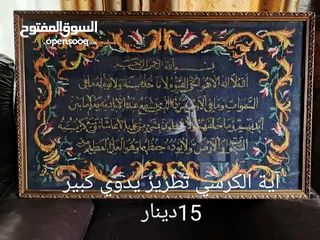 السوق المفتوح
opensooq.com
بسم الله الرحمن الرحيم
الله لا إله إلا هو الحي القيوم لا تأخذه سنة ولا نوم له ما في
السموات وما في الأرض من ذا الذي يشفع عنده إلا بإذنه يعلم ما بين
أيديهم وما خلفهم ولا يحيطون بشيء من علمه إلا بما شاء وسع كرسيه
السموات والأرض ولا يؤده حفظهما وهو العلي العظيم
اية الكرسي تطريز يدوي كبير
15دينار